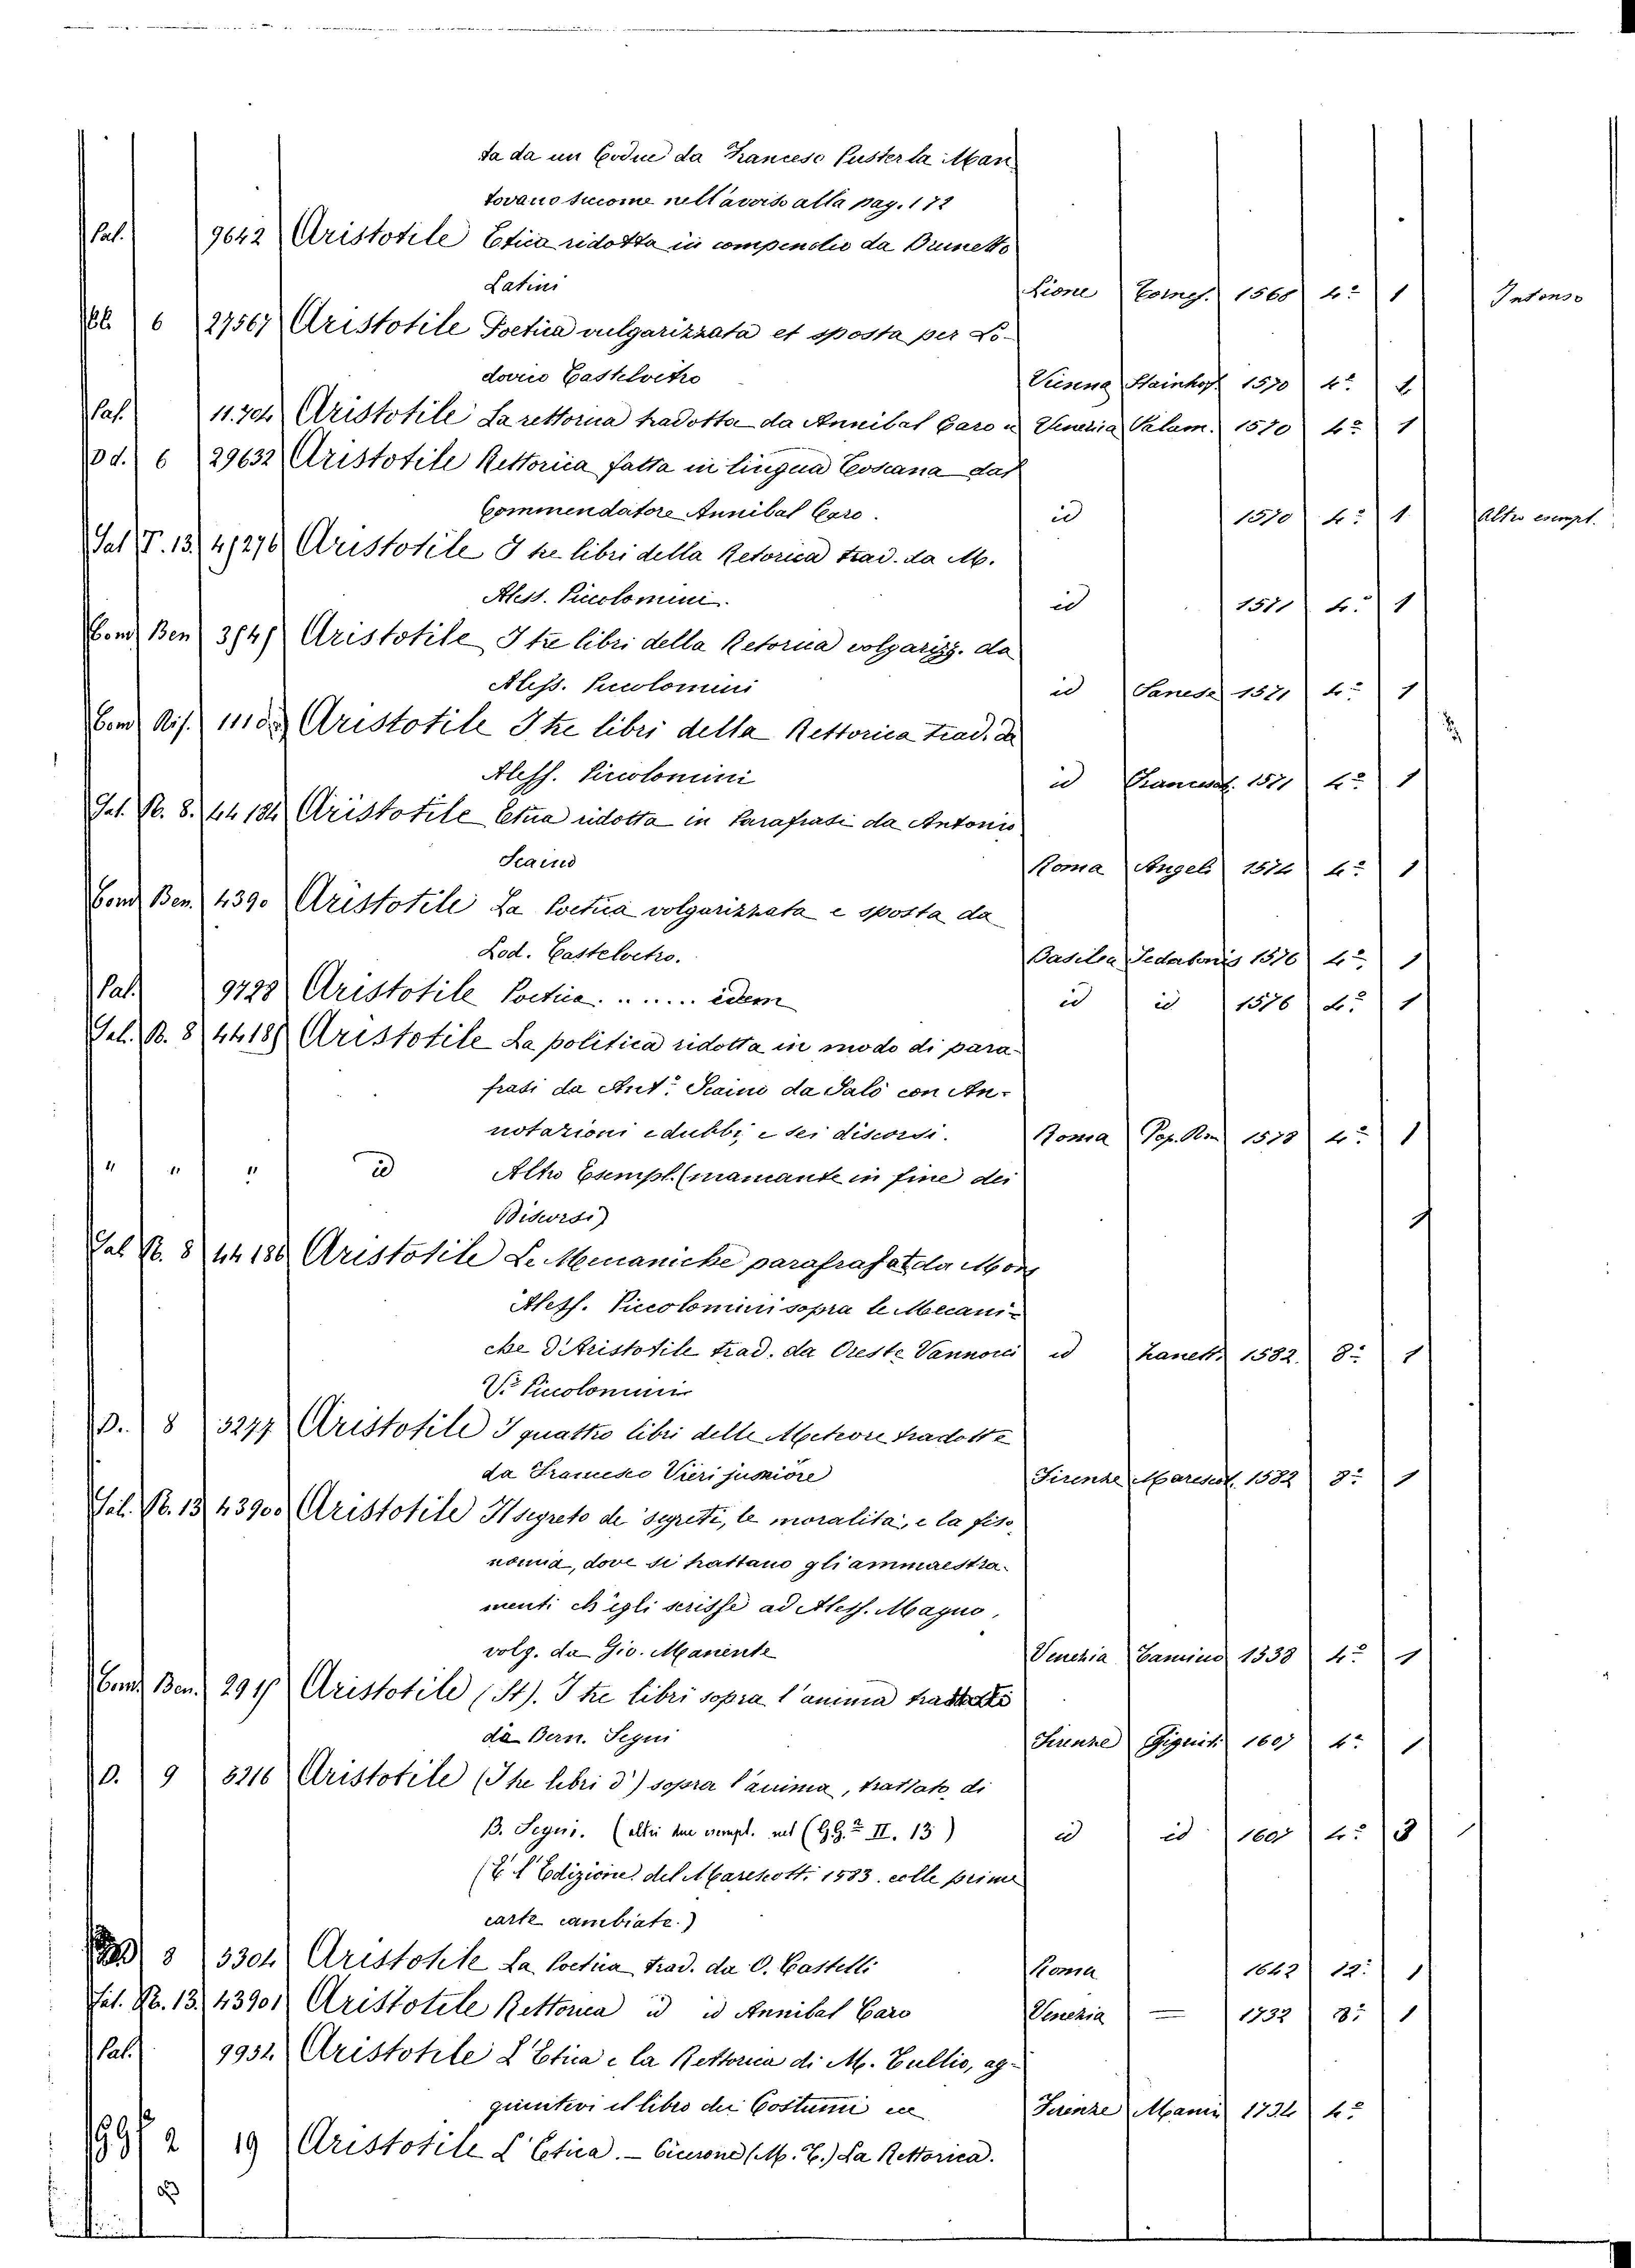 ta da un Codice da Francesc Pusterla Man
tovano siccome nell'avviso alla pag. 172
Pal. 9642 Aristotile Etica ridotta in compendio da Brunetto
Latini Lione Tornes. 1568 4º 1 Intonso
6 27567 Aristotile Poetica vulgarizzata et sposta per Lo-
dovico Castelvetro Vienna Stainhof. 1570 4º 1
Pal. 11.704 Aristotile La rettorica tradotta da Annibal Caro Venezia Salam. 1570 4º 1
D d. 6 29632 Aristotile Rettorica fatta in lingua Toscana dal
Commendatore Annibal Caro. id 1570 4º 1 Altro esempl.
Gal T. 13. 41276 Aristotile I tre libri della Retorica trad. da M.
Aless. Piccolomini. id 1571 4º 1
Com Ben 3841 Aristotile I tre libri della Retorica volgarizz. da
Aless. Piccolomini id Sanese 1571 4º 1
Com Ris. Aristotile I tre libri della Rettorica trad. da
Aless. Piccolomini id Francesch. 1571 4º 1
Gal. B. 8. 44184 Aristotile Etica ridotta in Parafrasi da Antonio
Scaino Roma Angeli 1574 4º 1
Com Ben. 4390 Aristotile La Poetica volgarizzata e sposta da
Lod. Castelvetro. Basilea Sedabonis 1576 4º 1
Pal. 9728 Aristotile Poetica. ....... idem id id 1576 4º 1
Gal. B. 8 44185 Aristotile La politica ridotta in modo di para-
frasi da Antº Scaino da Salò con An-
notazioni e dubbj e sei discorsi. Roma Pop. Rom 1578 4º 1
" " " id Altro Esempl. (mancante in fine dei
Discorsi) 1
Gal B. 8 44186 Aristotile Le Mecaniche parafrasat da Mons
Aless. Piccolomini sopra le Mecani-
che d'Aristotile trad. da Oreste Vannocci id Zanetti 1582. 8º 1
V. Piccolomini
D. 8 3277 Aristotile I quattro libri delle Meteore tradotte
da Francesco Vieri juniore Firenze Marescot. 1582 8º 1
Gal. B. 13 43900 Aristotile Il segreto de segreti, le moralita, e la fiso
nomia, dove si trattano gli ammaestra-
menti ch'egli scrisse ad Aless. Magno,
volg. da Gio. Manente Venezia Tamino 1538 4º 1
Com Ben. Aristotile (St). I tre libri sopra l'anima trattati
da Bern. Segni Firenze Giguit. 1607 4º 1
D. 9 3216 Aristotile (I tre libri d') sopra l'anima, trattato di
B. Segni. (altri due esempl. nel (GG.ª II. 13) id id 1607 4º 3
(È l'Edizione del Marescotti 1583. colle prime
carte cambiate.)
8 3304 Aristotile La Poetica trad. da O. Castelli Roma 1642 12º 1
Gal. B. 13. 43901 Aristotile Rettorica id id Annibal Caro Venezia — 1732 8º 1
Pal. 9932. Aristotile L'Etica e la Rettorica di M. Tullio, ag-
giuntovi il libro dei Costumi Firenze Manni 1734 4º
2 19 Aristotile L'Etica. - Cicerone (M. T.) La Rettorica.